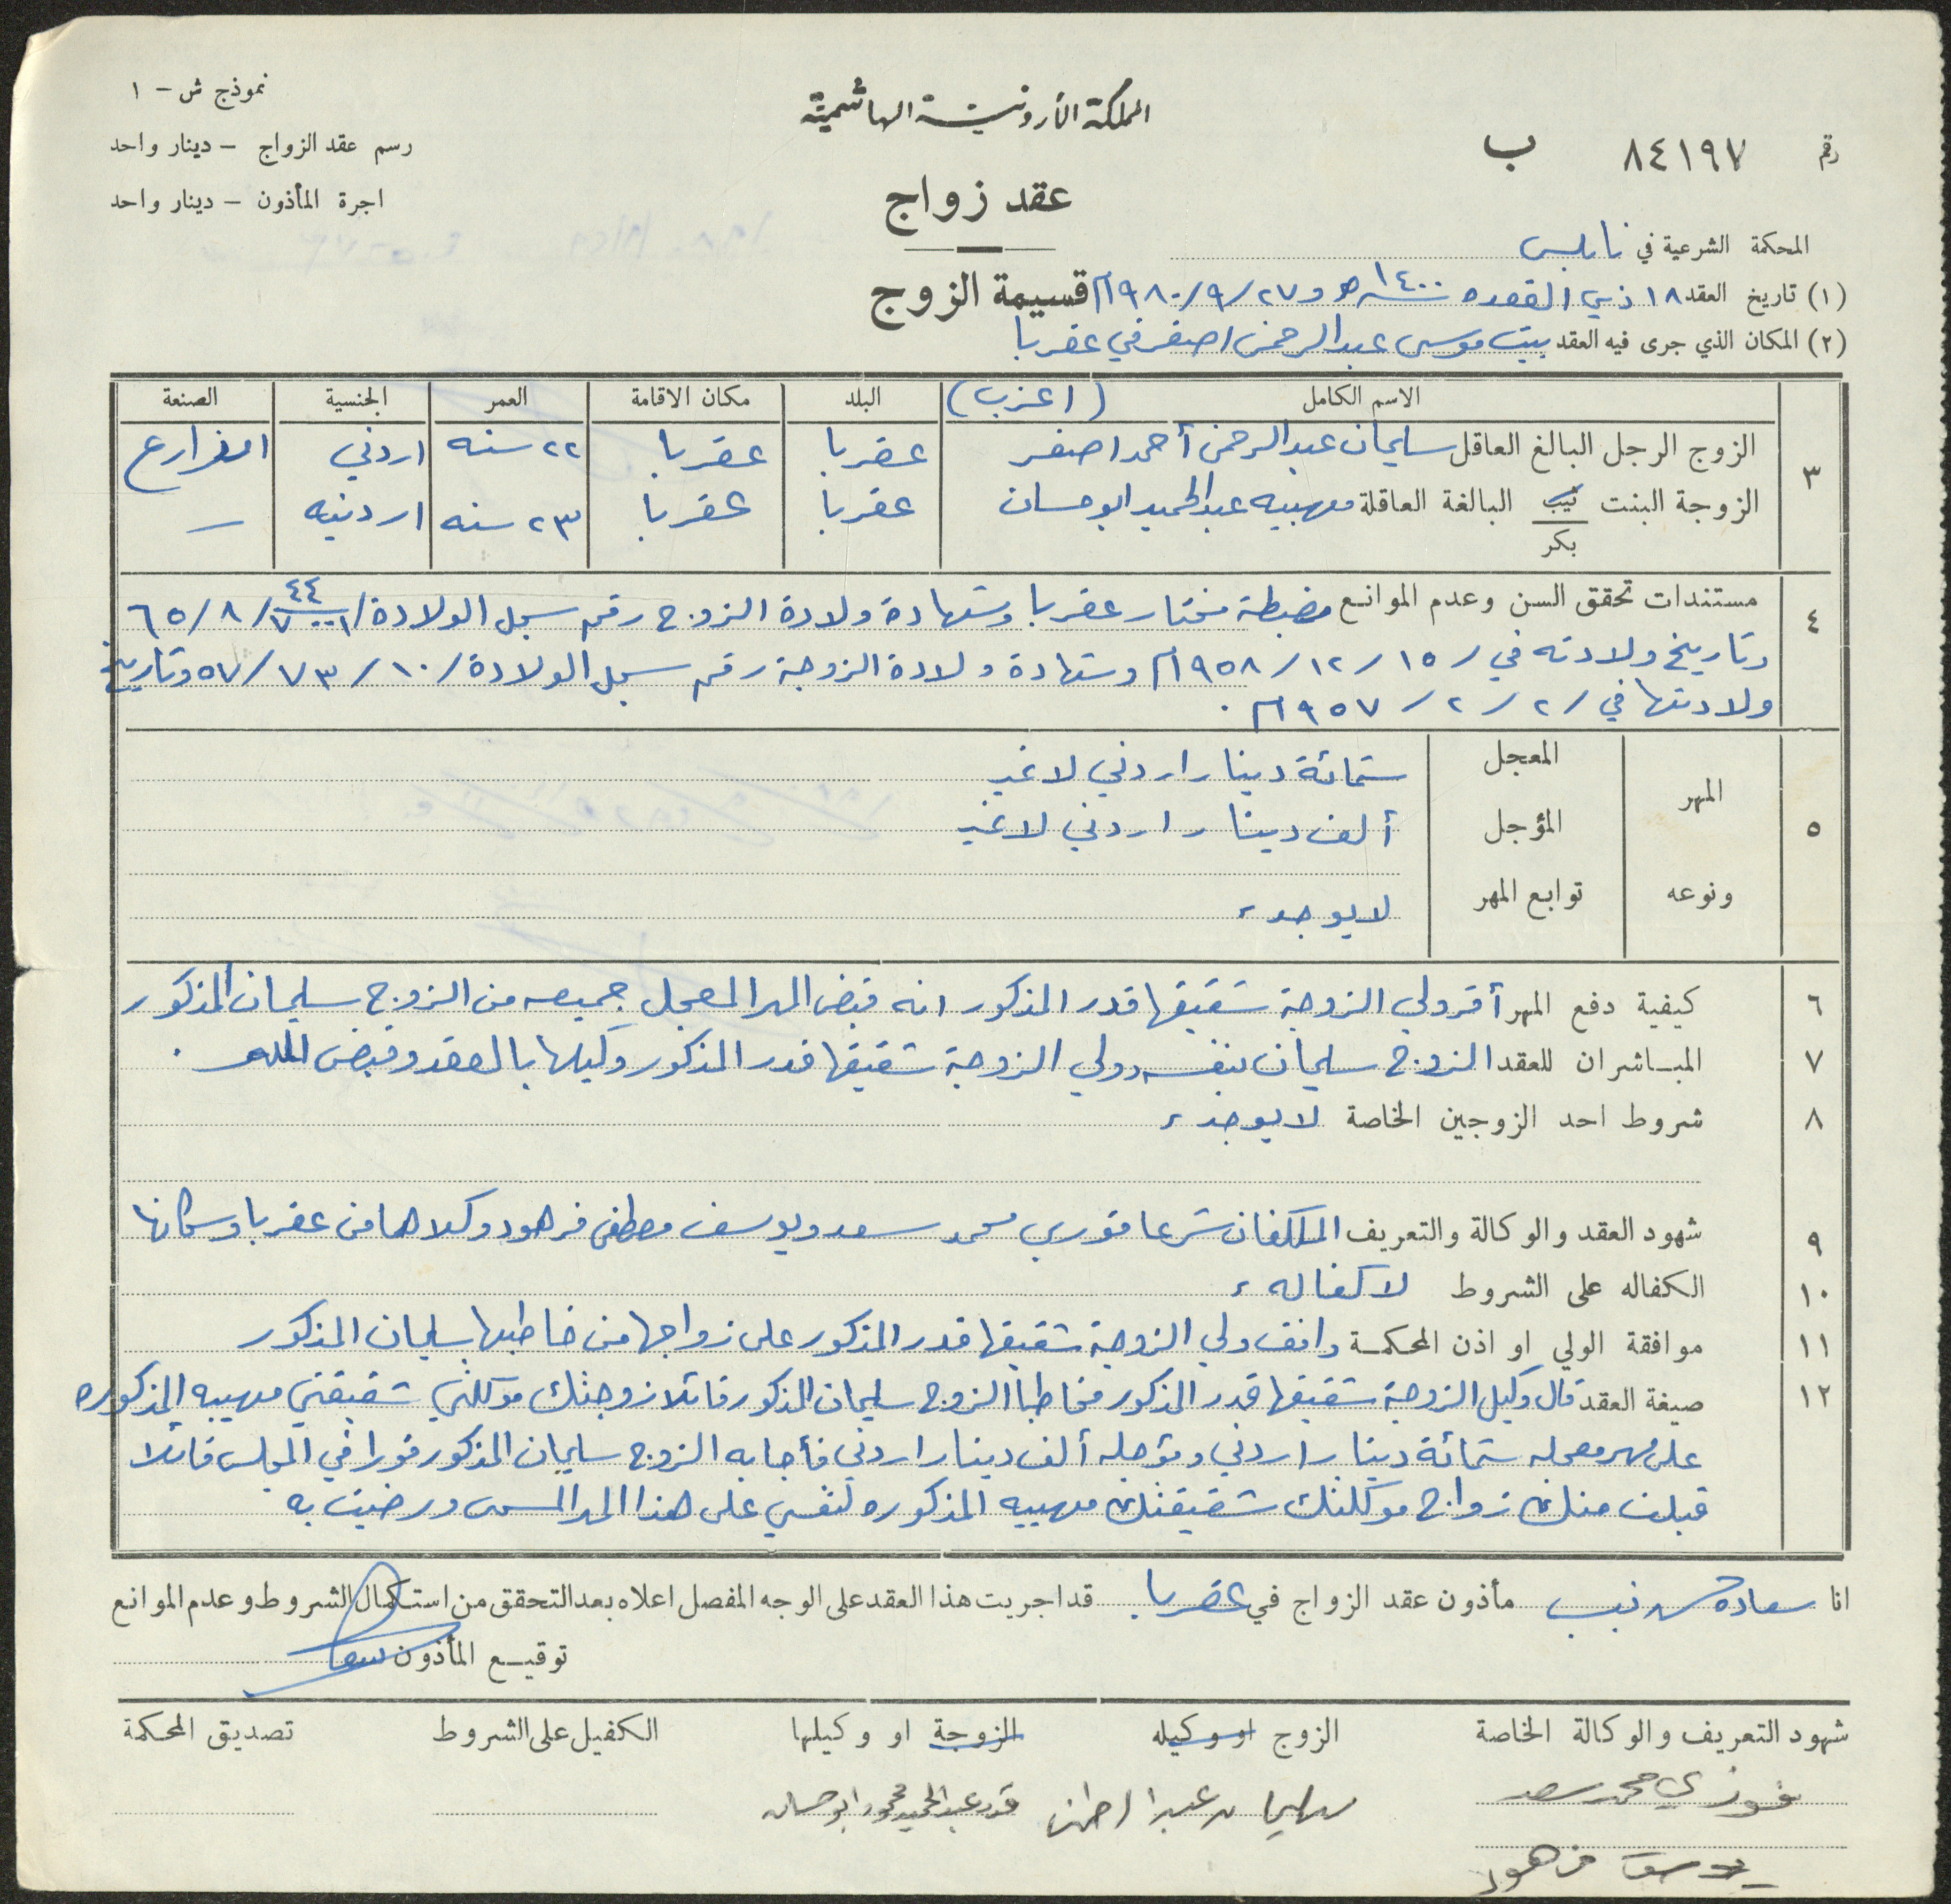 نموذج ش - ١
رسم عقد الزواج - دينار واحد
اجرة المأذون - دينار واحد
المملكة الأردنية الهاشمية
عقد زواج
قسيمة الزوج
رقم ٨٤١٩٧ ب
المحكمة الشرعية في نابلس
(١) تاريخ العقد ١٨ ذي القعده سنة ١٤٠٠ هـ و ٢٧/٩/١٩٨٠م
(٢) المكان الذي جرى فيه العقد بيت موسى عبدالرحمن اصفر في عقربا
الاسم الكامل (اعزب) البلد مكان الاقامة العمر الجنسية الصنعة
٣ الزوج الرجل البالغ العاقل سليمان عبدالرحمن أحمد اصفر عقربا عقربا ٢٢ سنه اردني
الزوجة البنت ثيب البالغة العاقلة مهيبه عبدالحميد ابوحسان عقربا عقربا ٢٣ سنه اردنيه –
بكر
٤ مستندات تحقق السن وعدم الموانع مضبطة مختار عقربا وشهادة ولادة الزوج رقم سجل الولادة / ٤٤ / ٨ / ٦٥
وتاريخ ولادته في / ١٥ / ١٢ / ١٩٥٨م وشهادة ولادة الزوجة رقم سجل الولادة / ١٠ / ٧٣ / ٥٧ وتاريخ
ولادتها في / ٢ / ٢ / ١٩٥٧م .
٥ المهر ونوعه
المعجل ستمائة دينار اردني لا غير
المؤجل ألف دينار اردني لا غير
توابع المهر لا يوجد ،
٦ كيفية دفع المهر أقر ولي الزوجة شقيقها قدر المذكور انه قبض المهر المعجل جميعه من الزوج سليمان المذكور
٧ المباشران للعقد الزوج سليمان بنفسه وولي الزوجة شقيقها قدر المذكور وكيلها بالعقد وقبض المهر .
٨ شروط احد الزوجين الخاصة لا يوجد ،
٩ شهود العقد والوكالة والتعريف المكلفان شرعا فوزي محمد سعد ويوسف مصطفى فرهود وكلاهما من عقربا وسكانها
١٠ الكفاله على الشروط لا كفاله ،
١١ موافقة الولي او اذن المحكمة وافق ولي الزوجة شقيقها قدر المذكور على زواجها من خاطبها سليمان المذكور
١٢ صيغة العقد قال وكيل الزوجة شقيقها قدر المذكور مخاطباً الزوج سليمان المذكور قائلا زوجتك موكلتي شقيقتي مهيبه المذكوره
على مهر معجله ستمائة دينار اردني ومؤجله ألف دينار اردني فأجابه الزوج سليمان المذكور فورا في المجلس قائلا
قبلت منك زواج موكلتك شقيقتك مهيبه المذكوره لنفسي على هذا المهر المسمى ورضيت به
انا سعاده نجيب مأذون عقد الزواج في عقربا قد اجريت هذا العقد على الوجه المفصل اعلاه بعد التحقق من استكمال الشروط وعدم الموانع
توقيع المأذون
شهود التعريف والوكالة الخاصة الزوج او وكيله الزوجة او وكيلها الكفيل على الشروط تصديق المحكمة
فوزي محمد سعد سليمان عبد الرحمن قدر عبدالحميد محمود ابوحسان
يوسف فرهود